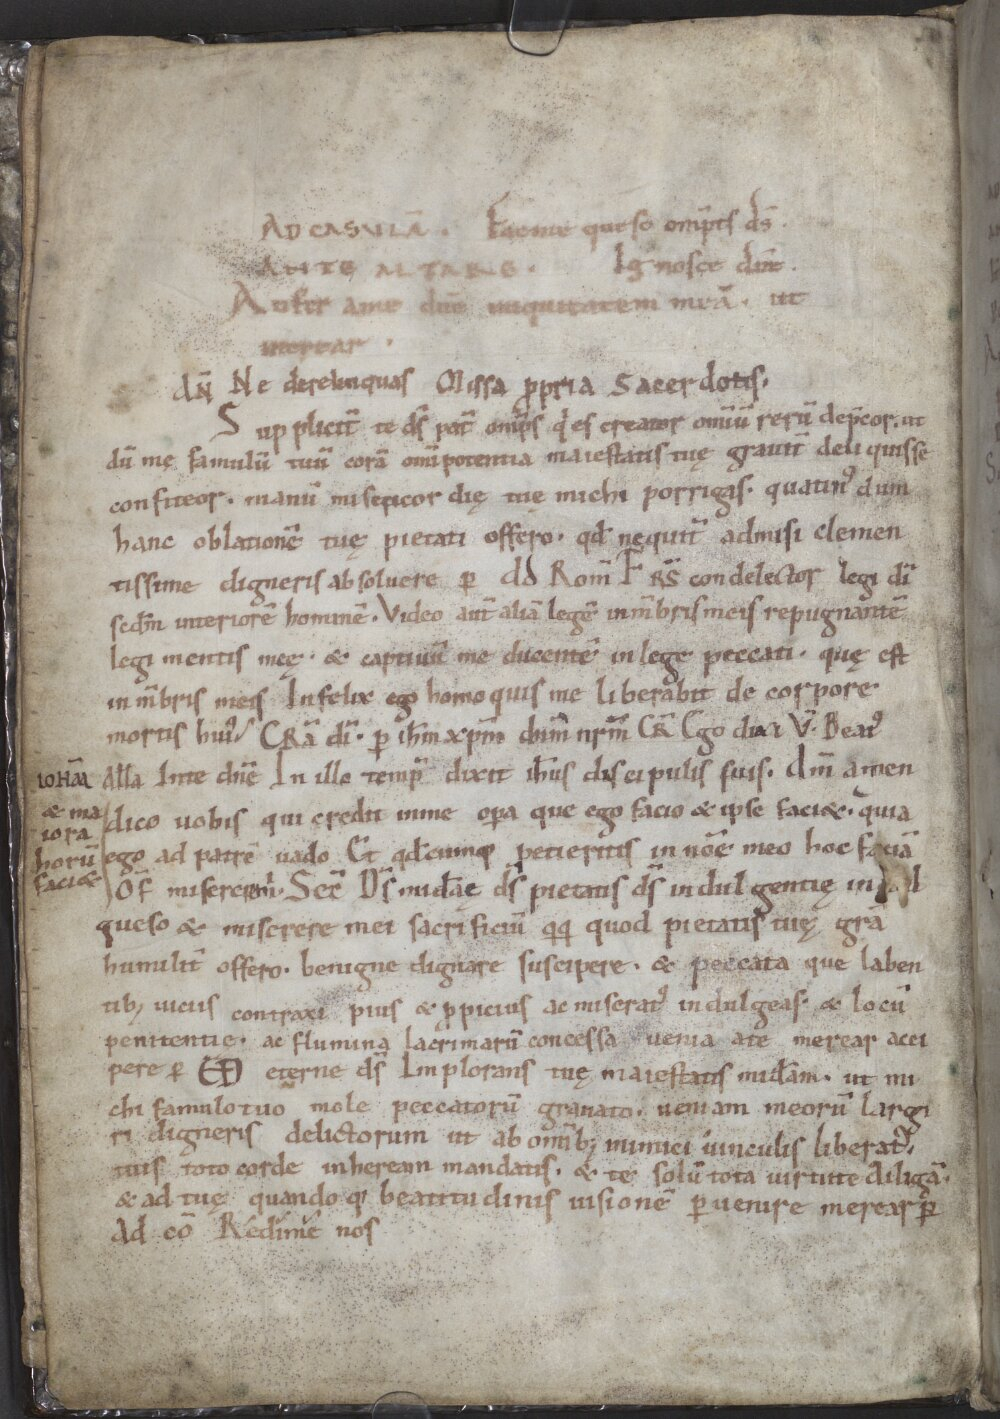 AD CASULĀ. Facme queso omp̄ts ds̄.
ANTE ALTARE. Ignosce dn̄e.
Aufer ame dn̄e iniquitatem meā. ut
merear.
AN̄ Ne derelinquas Missa ꝓpria Sacerdotis.
Supplicit̄ te ds̄ pat̄ omp̄s q̄ es creator omīū rerū dep̄cor. ut
dū mę famulū tuū corā omīpotentia maiestatis tuę grauit̄ deliquisse
confiteor. manū misericordię tuę michi porrigas. quatinꝰ dum
hanc oblationē tuę pietati offero. qđ nequit̄ admisi clemen
tissime digneris absoluere ꝑ ad Rom̄ FRS̄ condelector legi dī
scdm̄ interiorē hominē. Video aut̄ aliā legē in m̄bris meis repugnantē
legi mentis meę. & captiuū me ducentē in lege peccati. quę est
in m̄bris meis Infelix ego homo quis me liberabit de corpore
mortis huiꝰ GRĀ dī. ꝑ ih̄m xp̄m dn̄m nr̄m GR̄ Ego dixi V̄. Beatꝰ
Alla Inte dn̄e In illo temp̄ dixit ih̄us discipulis suis. Am̄ amen
dico uobis qui credit inme oꝑa que ego facio & ipse faci&. quia
IOHAN̄
& ma
iora
horū
faci&
ego ad patrē uado Et qđcumq; petieritis in nōe meo hoc faciā
Of̄ misererem̄. Secr̄ Ds̄ mīdāę ds̄ pietatis ds̄ indulgentię indul
queso & miserere mei sacrificiū qq; quod pietatis tuę grā
humilit̄ offero. benigne dignare suscipere. & peccata que laben
tib; uiciis contraxi pius & ꝓpicius ac miseratꝰ indulgeas. & locū
penitentie. ac flumina lacrimarū concessa uenia ate merear acci
pere ꝑ ētērne ds̄ Implorans tuę maiestatis mīdām. ut mi
chi famulo tuo mole peccatorū grauato. ueniam meorū largi
ri digneris delictorum ut ab omīb; inimici uinculis liberatꝰ.
tuis toto corde inheream mandatis. & te solū tota uirtute diligā.
& ad tuę quandoq; beatitudinis uisionē ꝑuenire merear ꝑ
Ad cō Redime nos